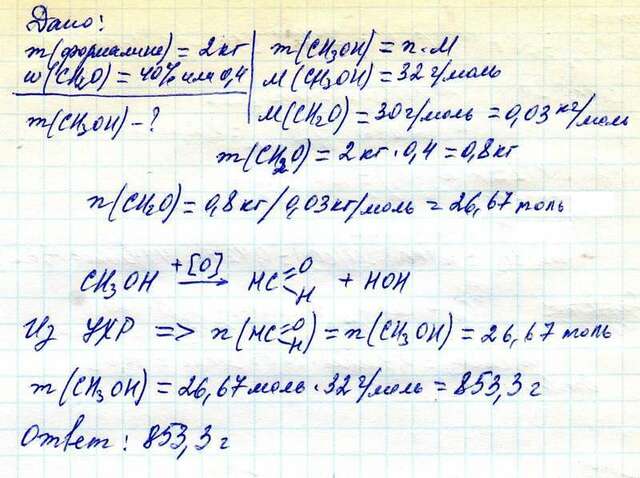 Дано:
m(формалина) = 2 кг
w(CH₂O) = 40% или 0,4
m(CH₃OH) - ?
m(CH₃OH) = n · M
M(CH₃OH) = 32 г/моль
M(CH₂O) = 30 г/моль = 0,03 кг/моль
m(CH₂O) = 2 кг · 0,4 = 0,8 кг
n(CH₂O) = 0,8 кг / 0,03 кг/моль = 26,67 моль
CH₃OH +[O] → HC=O H + HOH
Из УХР => n(HC=O H) = n(CH₃OH) = 26,67 моль
m(CH₃OH) = 26,67 моль · 32 г/моль = 853,3 г
Ответ: 853,3 г